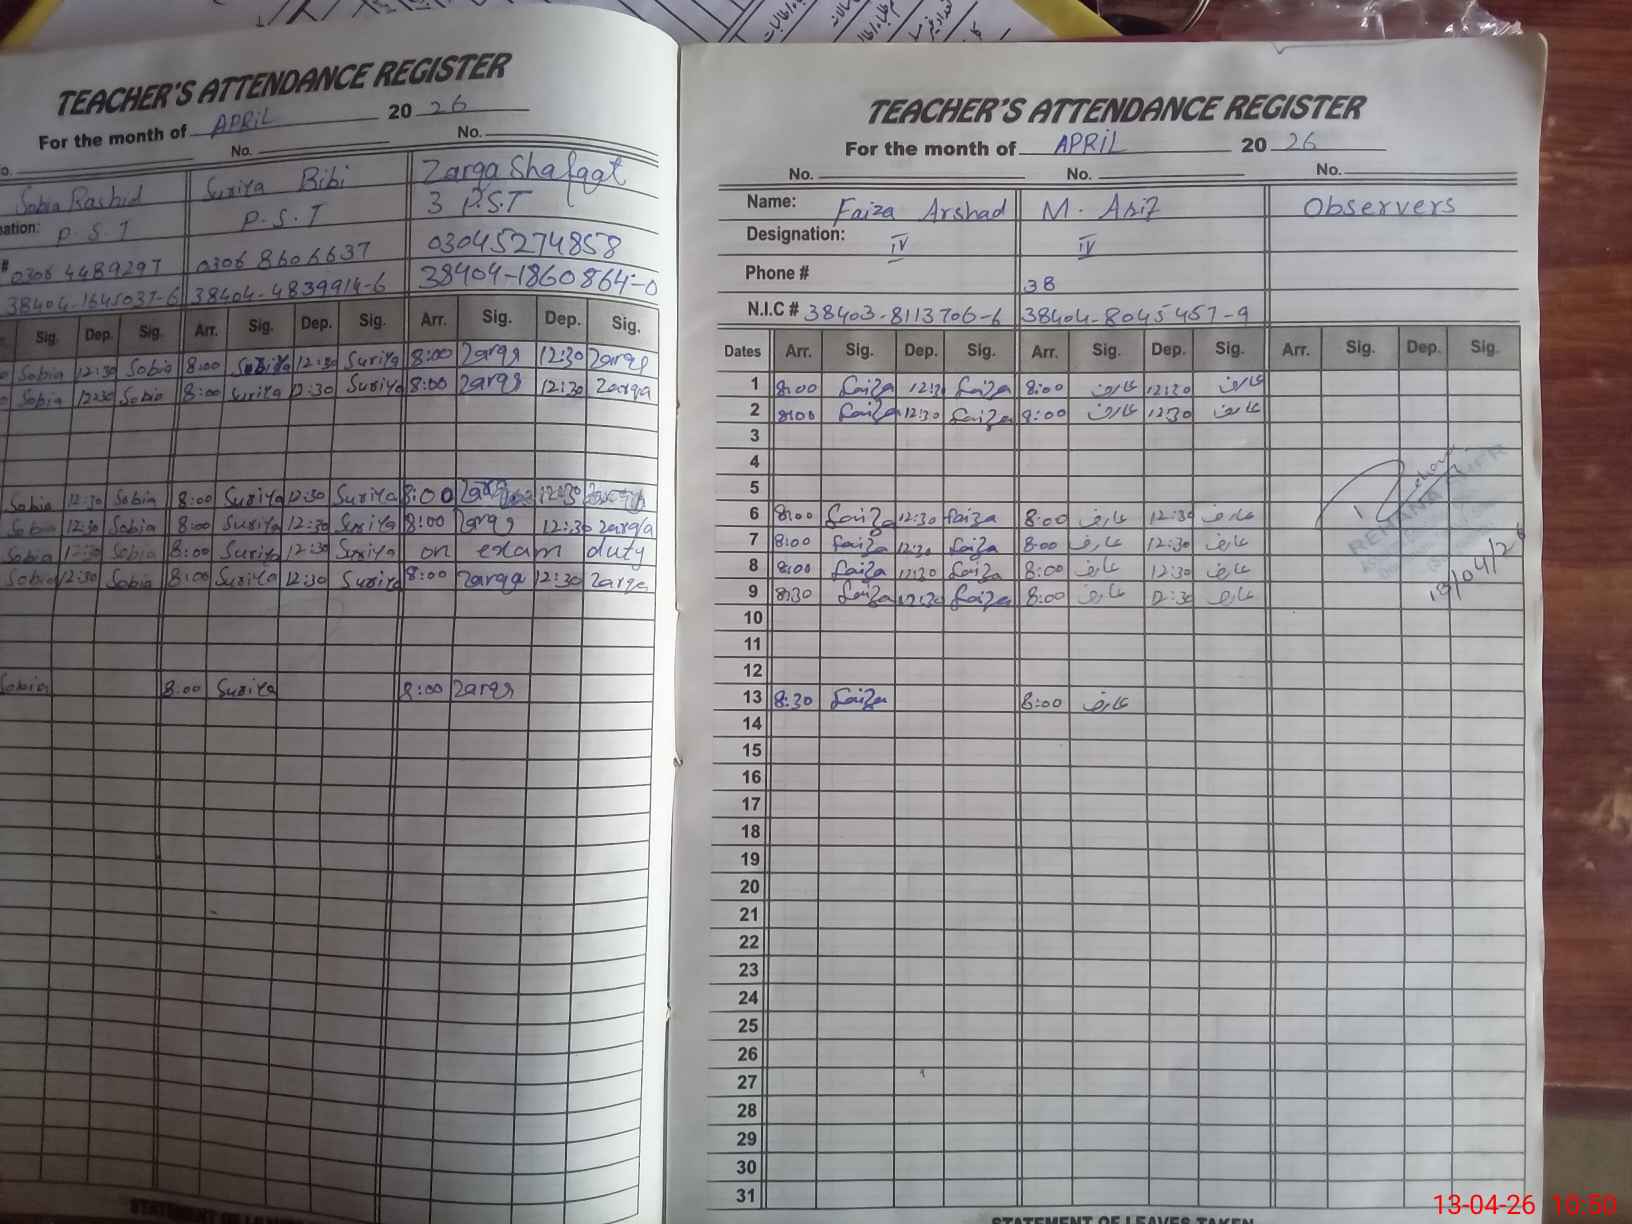 TEACHER'S ATTENDANCE REGISTER
For the month of APRIL 20 26
No. No.
Sobia Rashid Suriya Bibi Zarqa Shafqat
P.S.T P.S.T 3 P.S.T
0306 4489297 0306 8606637 03045274858
38404-1645037-6 38404-4839914-6 38404-1860864-0
Sig. Dep. Sig. Arr. Sig. Dep. Sig. Arr. Sig. Dep. Sig.
Sobia 12:30 Sobia 8:00 Suriya 12:30 Suriya 8:00 Zarqa 12:30 Zarqa
Sobia 12:30 Sobia 8:00 Suriya 12:30 Suriya 8:00 Zarqa 12:30 Zarqa
Sobia 12:30 Sobia 8:00 Suriya 12:30 Suriya 8:00 Zarqa 12:30
Sobia 12:30 Sobia 8:00 Suriya 12:30 Suriya 8:00 Zarqa 12:30 Zarqa
Sobia 12:30 Sobia 8:00 Suriya 12:30 Suriya on exam duty
Sobia 12:30 Sobia 8:00 Suriya 12:30 Suriya 8:00 Zarqa 12:30 Zarqa
Sobia 8:00 Suriya 8:00 Zarqa
TEACHER'S ATTENDANCE REGISTER
For the month of APRIL 20 26
No. No. No.
Name: Faiza Arshad M. Arif Observers
Designation: IV IV
Phone # 38
N.I.C # 38403-8113706-6 38404-8045457-9
Dates Arr. Sig. Dep. Sig. Arr. Sig. Dep. Sig. Arr. Sig. Dep. Sig.
1 8:00 Faiza 12:30 Faiza 8:00 عارف 12:30 عارف
2 8:00 Faiza 12:30 Faiza 8:00 عارف 12:30 عارف
3
4
5
6 8:00 Faiza 12:30 Faiza 8:00 عارف 12:30 عارف
7 8:00 Faiza 12:30 Faiza 8:00 عارف 12:30 عارف
8 8:00 Faiza 12:30 Faiza 8:00 عارف 12:30 عارف
9 8:30 Faiza 12:30 Faiza 8:00 عارف 12:30 عارف
10
11
12
13 8:30 Faiza 8:00 عارف
14
15
16
17
18
19
20
21
22
23
24
25
26
27
28
29
30
31
STATEMENT OF LEAVES TAKEN
13-04-26 10:50